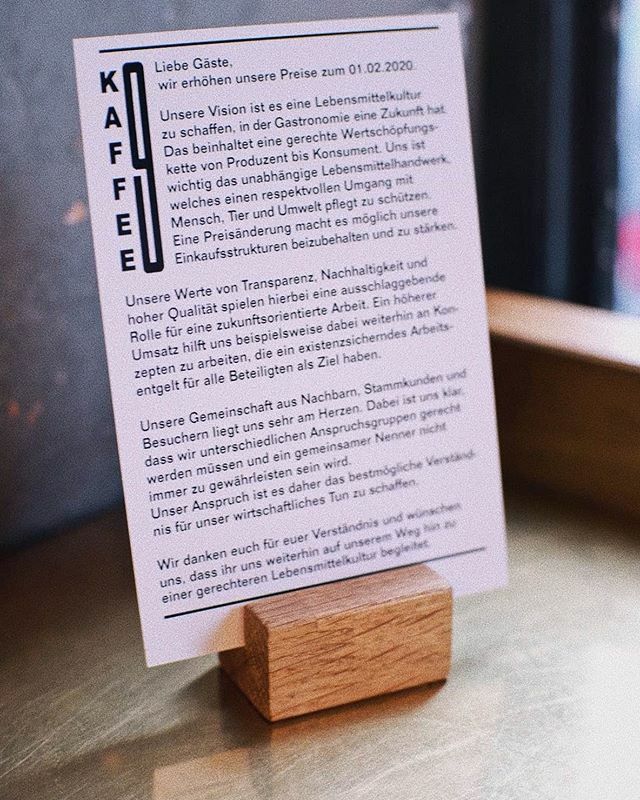 KAFFEE
Liebe Gäste,
wir erhöhen unsere Preise zum 01.02.2020.
Unsere Vision ist es eine Lebensmittelkultur
zu schaffen, in der Gastronomie eine Zukunft hat.
Das beinhaltet eine gerechte Wertschöpfungs-
kette von Produzent bis Konsument. Uns ist
wichtig das unabhängige Lebensmittelhandwerk,
welches einen respektvollen Umgang mit
Mensch, Tier und Umwelt pflegt zu schützen.
Eine Preisänderung macht es möglich unsere
Einkaufsstrukturen beizubehalten und zu stärken.
Unsere Werte von Transparenz, Nachhaltigkeit und
hoher Qualität spielen hierbei eine ausschlaggebende
Rolle für eine zukunftsorientierte Arbeit. Ein höherer
Umsatz hilft uns beispielsweise dabei weiterhin an Kon-
zepten zu arbeiten, die ein existenzsicherndes Arbeits-
entgelt für alle Beteiligten als Ziel haben.
Unsere Gemeinschaft aus Nachbarn, Stammkunden und
Besuchern liegt uns sehr am Herzen. Dabei ist uns klar,
dass wir unterschiedlichen Anspruchsgruppen gerecht
werden müssen und ein gemeinsamer Nenner nicht
immer zu gewährleisten sein wird.
Unser Anspruch ist es daher das bestmögliche Verständ-
nis für unser wirtschaftliches Tun zu schaffen.
Wir danken euch für euer Verständnis und wünschen
uns, dass ihr uns weiterhin auf unserem Weg hin zu
einer gerechteren Lebensmittelkultur begleitet.